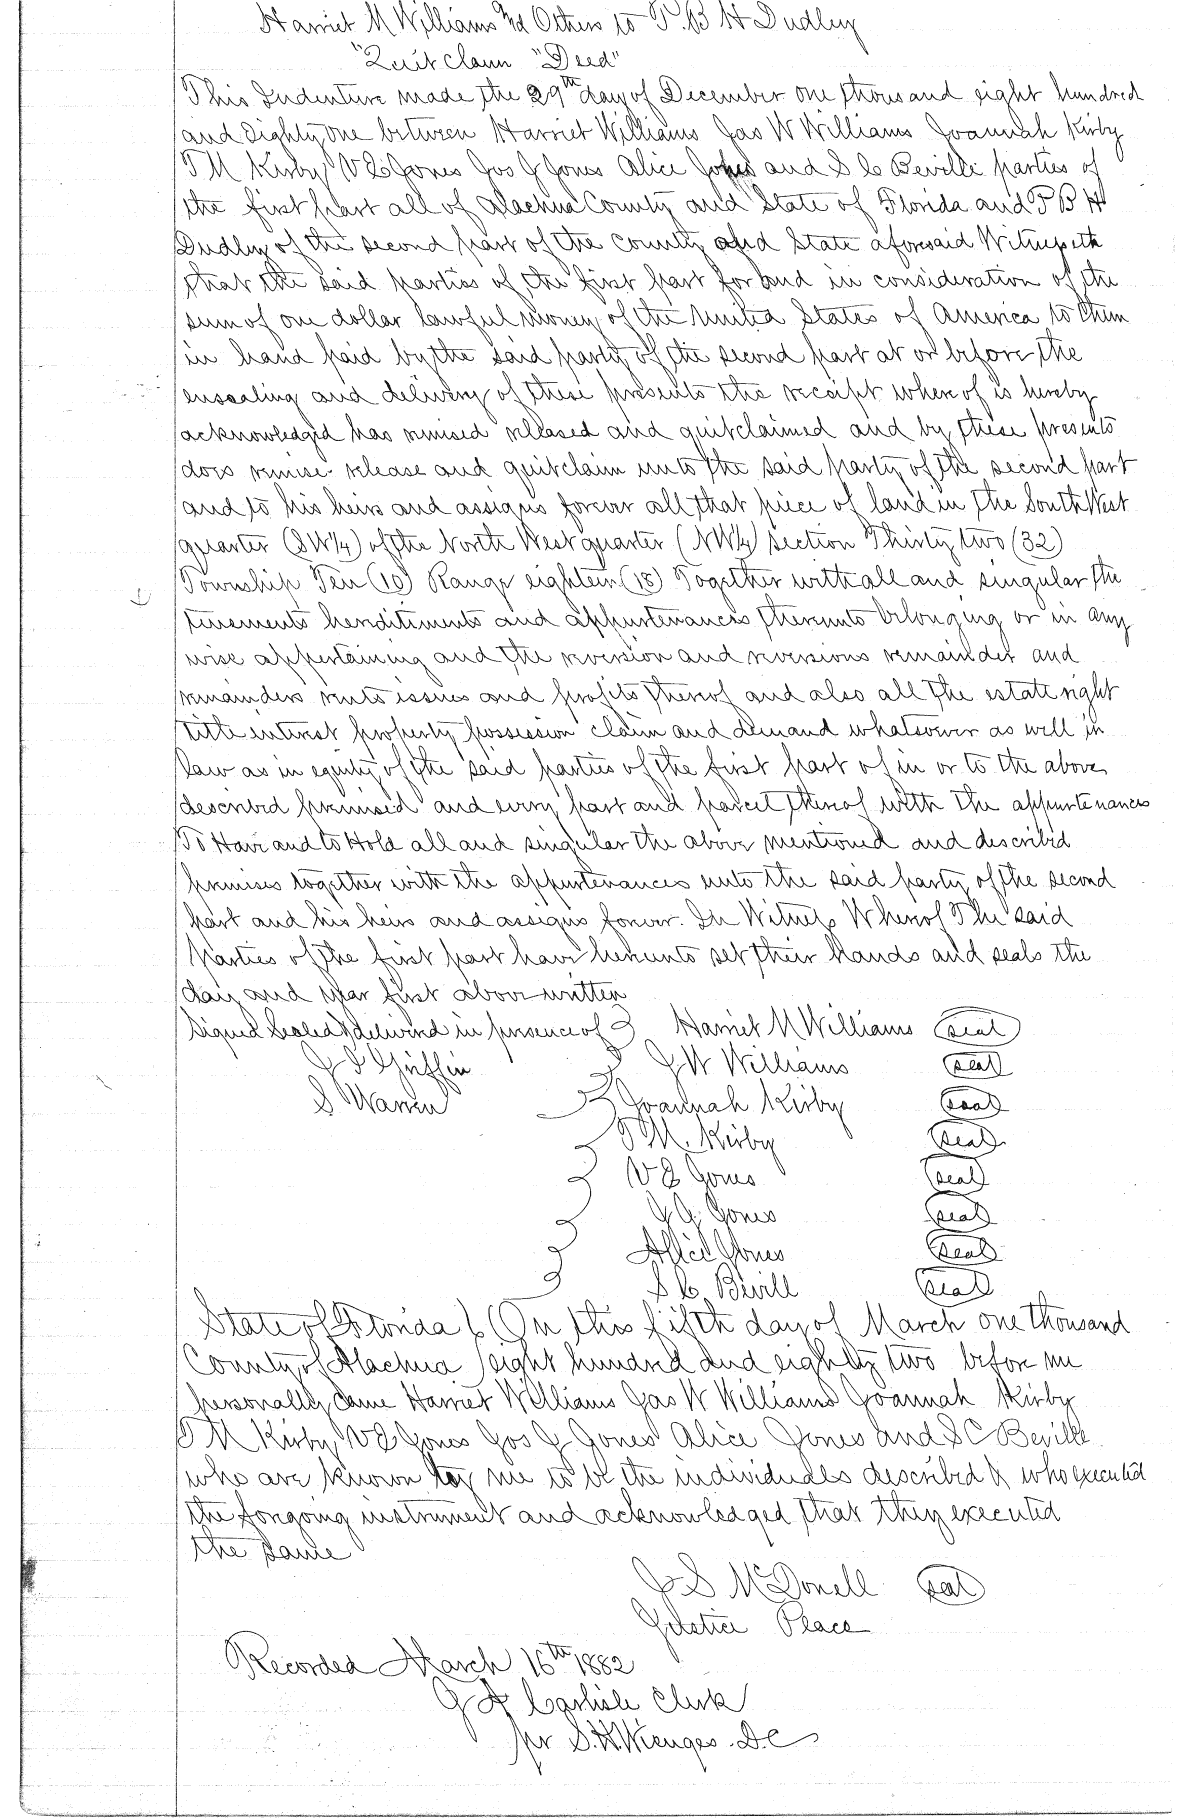 Harriet M Williams and Others to P. B H Dudley
"Quit Claim "Deed"
This Indenture made the 29th day of December one thousand eight hundred
and Eighty one between Harriet Williams Jas W Williams Joannah Kirby
T M Kirby V E Jones Jos G Jones Alice Jones and S C Beville parties of
the first part all of Alachua County and State of Florida and P B H
Dudley of the second part of the county and State aforesaid Witnesseth
that the said parties of the first part for and in consideration of the
sum of one dollar lawful money of the United States of America to them
in hand paid by the said party of the second part at or before the
ensealing and delivery of these presents the receipt where of is hereby
acknowledged has remised released and quitclaimed and by these presents
does remise release and quitclaim unto the said party of the second part
and to his heirs and assigns forever all that piece of land in the South West
quarter (SW¼) of the North West quarter (NW¼) section Thirty two (32)
Township Ten (10) Range eighteen (18) Together with all and singular the
tenements hereditiments and appurtenances thereunto belonging or in any
wise appertaining and the reversion and reversions remainder and
remainders rents issues and profits thereof and also all the estate right
title interest property possession claim and demand whatsoever as well in
law as in equity of the said parties of the first part of in or to the above
described premised and every part and parcel thereof with the appurtenances
To Have and to Hold all and singular the above mentioned and described
premises together with the appurtenances unto the said party of the second
part and his heirs and assigns forever. In Witness Whereof The said
parties of the first part have hereunto set their hands and seals the
day and year first above written
Signed Sealed & delivered in presence of Harriet M Williams seal
J W Williams seal
S Warren Joannah Kirby seal
T M. Kirby seal
V E Jones seal
J G. Jones seal
Allice Jones seal
S C. Bevill seal
State of Florida On this fifth day of March one thousand
County of Alachua eight hundred and eighty two before me
personally came Harriet Williams Jas W Williams Joannah Kirby
T M Kirby V E Jones Jos G Jones Alice Jones and S C Beville
who are known to me to be the individuals described & who executed
the forgoing instrument and acknowledged that they executed
the same
J S McDonell seal
Justice Peace
Recorded March 16th 1882
J A Carlisle Clerk
pr S. H. Wienges. D.C